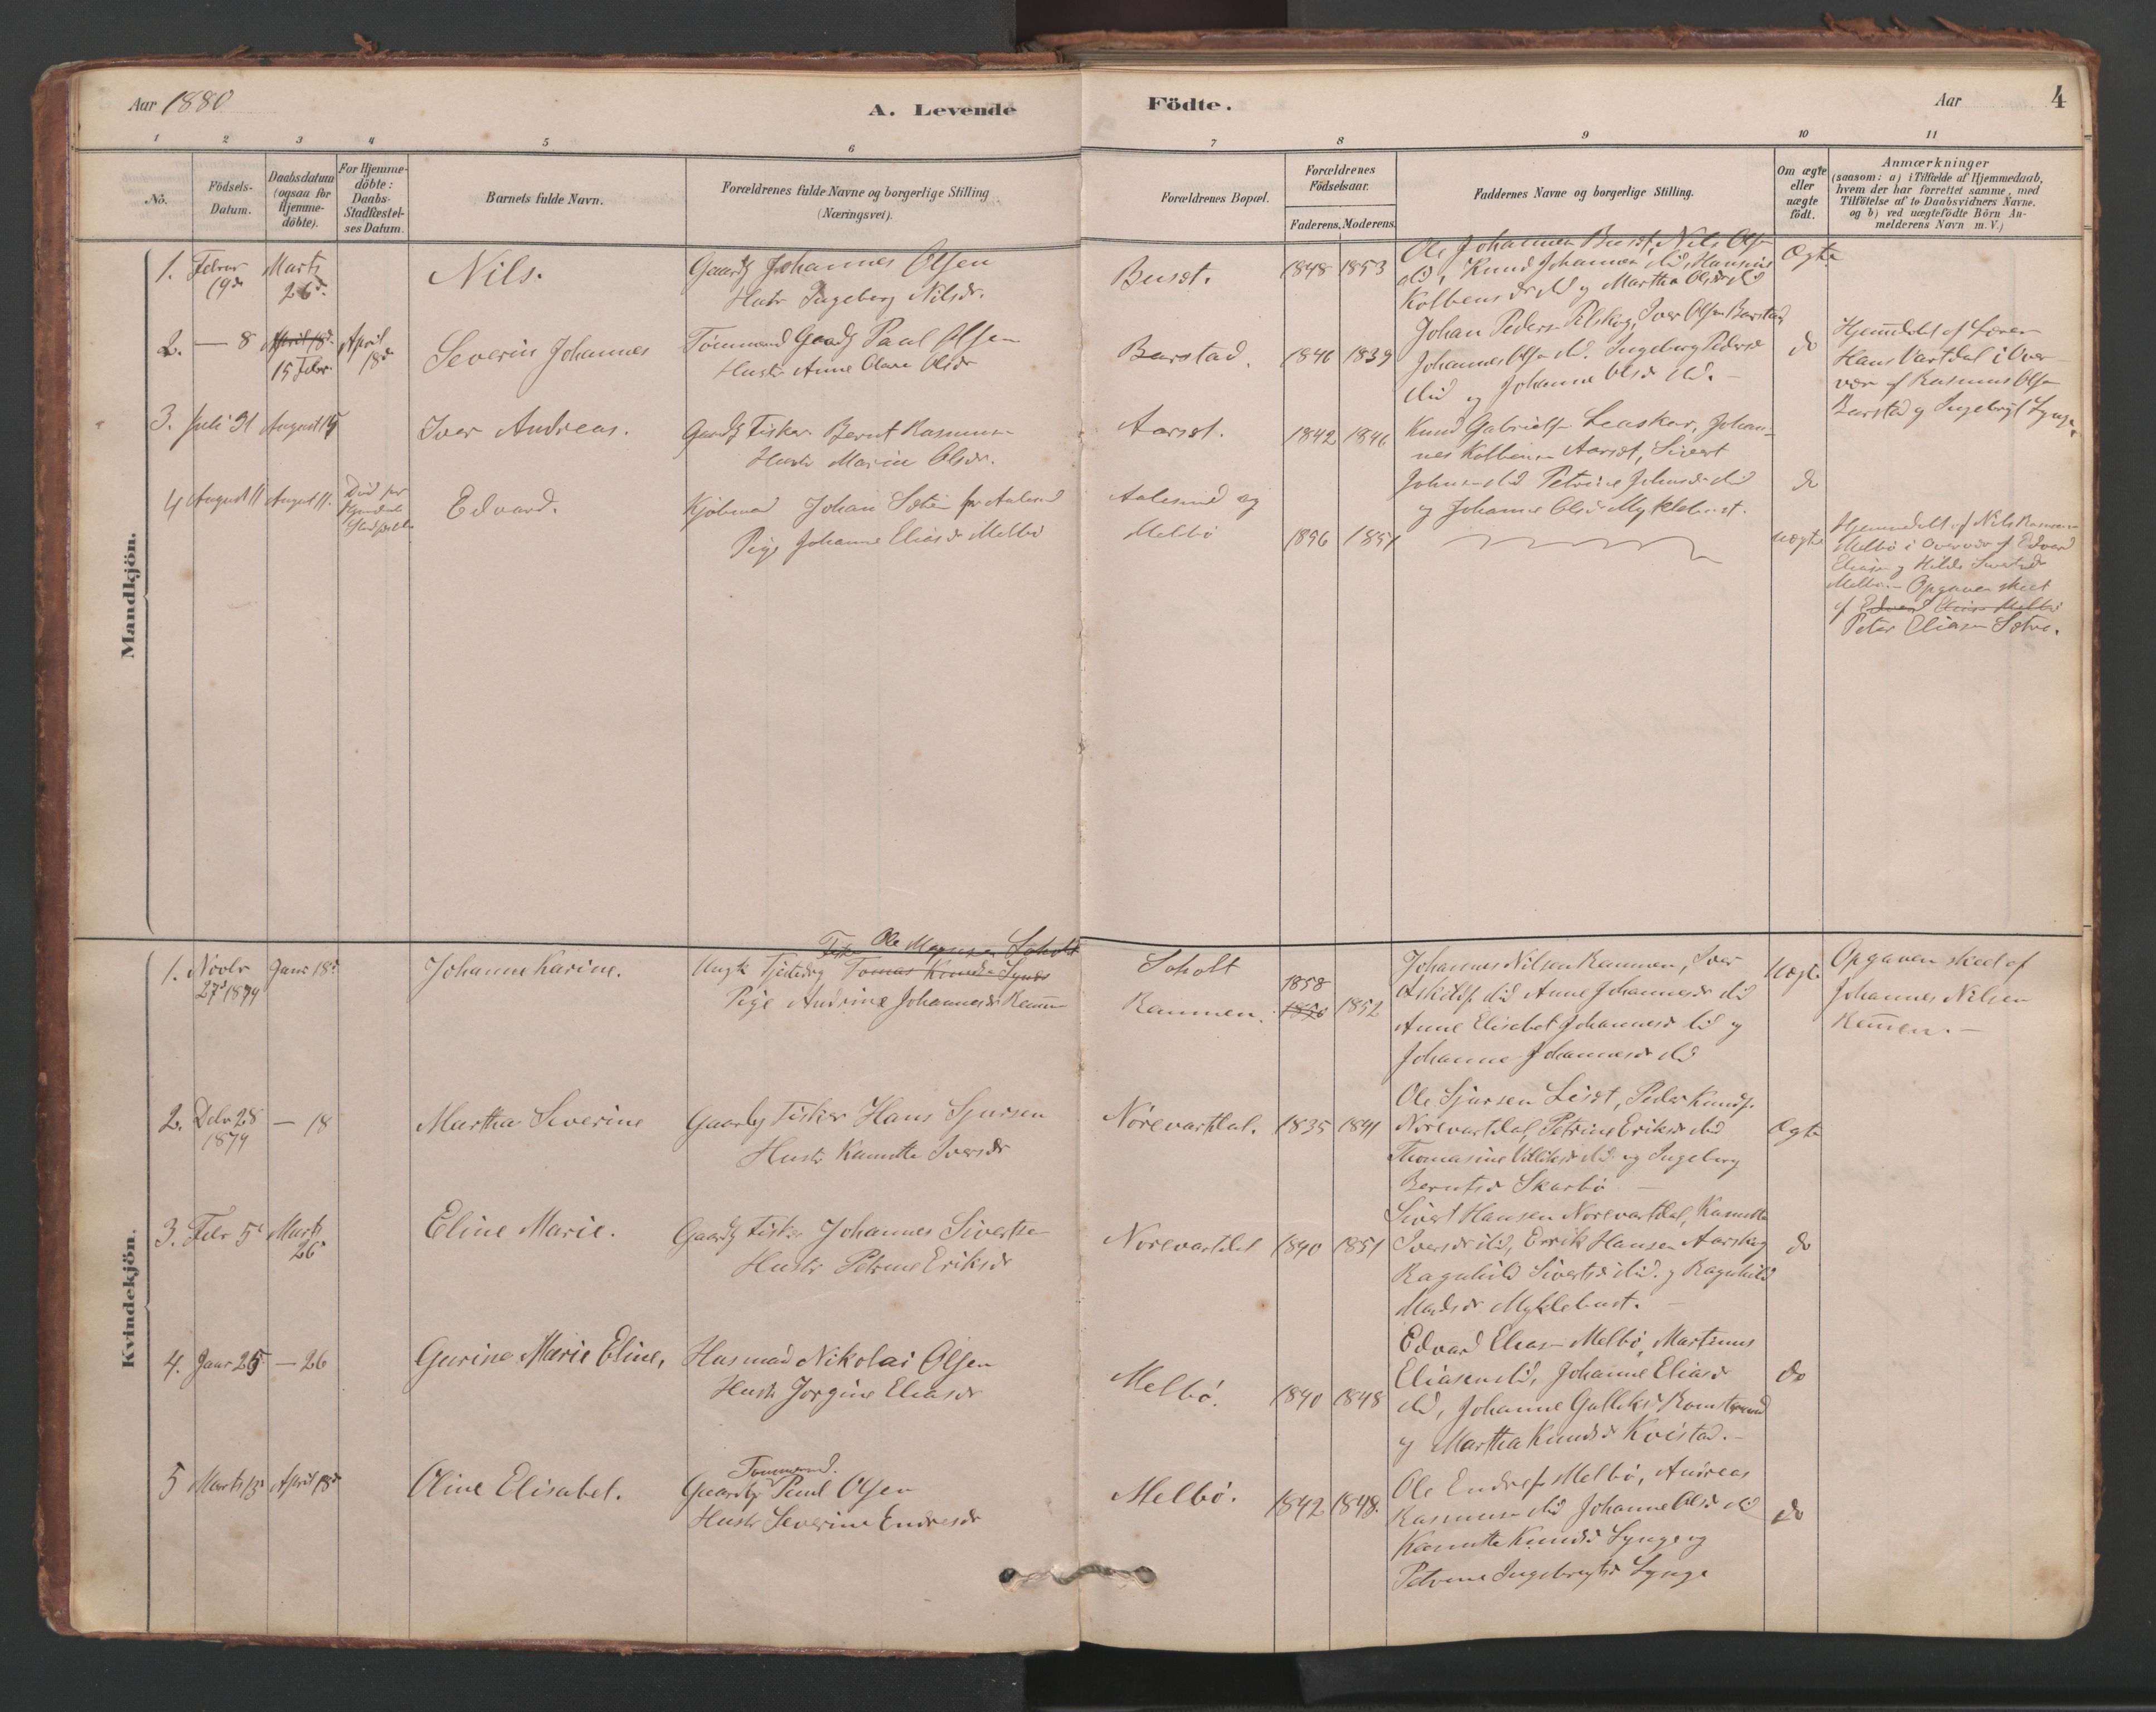 Aar 1880
A. Levende
Födte.
Aar
4
1 2 3 4 5 6 7 8 9 10 11
No.
Födsels-
Datum.
Daabsdatum
(ogsaa for
Hjemme-
döbte).
For Hjemme-
döbte:
Daabs-
Stadfæstel-
ses Datum.
Barnets fulde Navn.
Forældrenes fulde Navne og borgerlige Stilling
(Næringsvei).
Forældrenes Bopæl.
Forældrenes
Födselsaar.
Faderens. Moderens.
Faddernes Navne og borgerlige Stilling.
Om ægte
eller
uægte
födt.
Anmærkninger
(saasom: a) i Tilfælde af Hjemmedaab,
hvem der har forrettet samme, med
Tilföielse af to Daabsvidners Navne.
og b) ved uægtefödte Börn An-
melderens Navn m. V.)
Mandkjön.
1. Febr 19d Marts 26d Nils.
Gaardb Johannes Olsen
Hustr Ingeborg Nilsdr.
Busdt. 1848 1853
Ole Johannesen Busdt, Nils Olsen
did, Knud Johannesen did, Hansine
Kolbensdr did og Martha Olsdr did
Ægte
2. — 8 April 18d 15 Febr. April 18d Severin Johannes
Tömmermd Gaardb Paul Olsen
Hustr Anne Olave Olsdr
Barstad. 1846 1839
Johan Pedersn Pilskog, Iver Olsen Barstad
Johannes Olsen did. Ingeborg Pedersdr
did og Johanne Olsdr did. —
do
Hjemdöbt af Lærer
Hans Vartdal i Over-
vær af Rasmus Olsen
Barstad og Ingebrigt Synge.
3. Juli 31 August 15 Iver Andreas.
Gaardb Fisker Bernt Rasmussen
Hustr Marie Olsdr.
Aarsdt. 1842 1846
Knud Gabrielsen Leaskar, Johan-
nes Kolbensen Aarsdt, Sivert
Johnsen did Petrine Johnsdr did
og Johanne Olsdr Myklebust.
do
4 August 11 August 11. Död for Edvard.
Kjöbmand Johan Sætre fra Aalesund
Pige Johanne Eliasdr Melbö
Aalesund og
Melbö 1856 1857
uægte
Hjemmedöbt af Nils Rasmussen
Melbö i Overvær af Edvard
Eliasen og Hilde Sivertsdr
Melbö. — Opgaven skeet
af Edvard Eliasen Melbö
Peter Eliasen Sætre.
Kvindekjön.
1. Novbr 27d 1879 Janr 18d Johanne Karine.
Fisk Ole Magnusen Soholt
Ungk Tjenestedrg Tomas Knudsen Synes
Pige Andrine Johannesdr Remmen
Soholt
Remmen. 1858 1850 1852
Johannes Nilsen Remmen, Iver
Askildsen did Anne Johannesdr did
Anne Elisabet Johannesdr did og
Johanne Johannesdr did
Uægte
Opgaven skeed af
Johannes Nilsen
Remmen. —
2. Debr 28 1879 — 18 Martha Severine
Gaardb Fisker Hans Sjursen
Hustr Kanutte Iversdr
Nörevartdal. 1835 1841
Ole Sjursen Lisdt, Peder Knuds.
Nörevartdal, Petrine Eriksdr did
Thomasine Villiksdr did og Ingeborg
Berntsdr Skarbö —
Ægte
3. Febr 5d Marts 26d Eline Marie.
Gaardb Fisker Johannes Sivertsen
Hustr Petrine Eriksdr
Norevartdal 1840 1851
Sivert Hansen Norevartdal, Kanutte
Iversdr did, Errik Hansen Aarskog
Ragnhild Sivertsdr did. og Ragnhild
Madsdr Myklebust. —
do
4. Janr 25 — 26 Gurine Marie Eline,
Husmand Nikolai Olsen
Hustr Jorgine Eliasdr
Melbö. 1840 1848
Edvard Eliasen Melbö, Martinus
Eliasen did, Johanne Eliasdr
did, Johanne Gulliksdr Romstrand
og Martha Knudsdr Kvistad. —
do
5 Marts 13d April 18d Oline Elisabet.
Tömmermd.
Gaardb Paul Olsen
Hustr Severine Endresdr
Melbö. 1842 1848.
Ole Endresen Melbö, Andreas
Rasmussen did Johanne Olsdr did
Kanutte Knudsdr Synge og
Petrine Ingebrigtsdr Synge
do